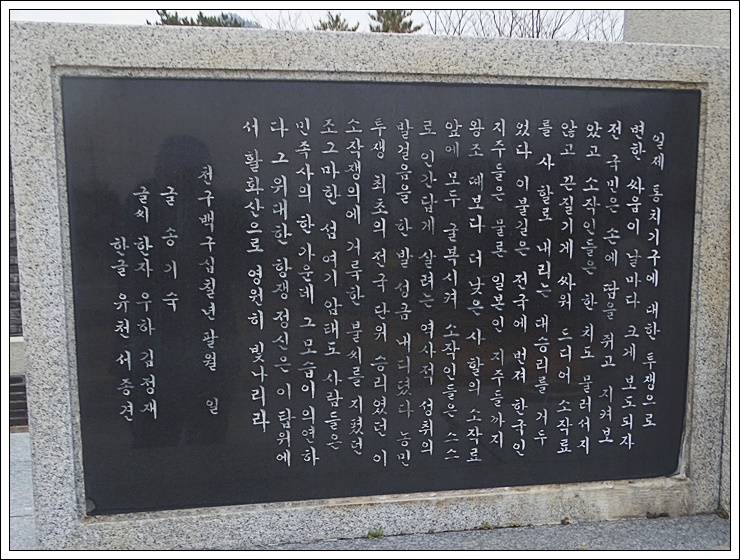 일제 통치기구에 대한 투쟁으로
변한 싸움이 날마다 크게 보도되자
전 국민은 손에 땀을 쥐고 지켜보
았고 소작인들은 한치도 물러서지
않고 끈질기게 싸워 드디어 소작료
를 사할로 내리는 대승리를 거두
었다 이불길은 전국에 번져 한국인
지주들은 물론 일본인 지주들까지
왕조 때보다 더 낮은 사할의 소작료
앞에 모두 굴복시켜 소작인들은 스스
로 인간답게 살려는 역사적 성취의
발걸음을 한발 성큼 내디뎠다 농민
투쟁 최초의 전국 단위 승리였던 이
소작쟁의에 거룩한 불씨를 지폈던
조그마한 섬 여기 암태도 사람들은
민족사의 한가운데 그모습이 의연하
다 그위대한 항쟁정신은 이탑위에
서 활화산으로 영원히 빛나리라
천구백구십칠년 팔월 일
글 송기숙
글씨 한자 우하 김정재
한글 유천 서종견